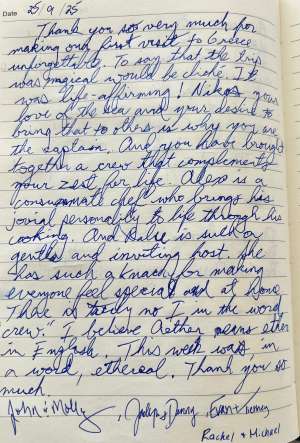 Date 25/9/25
Thank you so very much for
making our first visit to Greece
unforgettable. To say that the trip
was magical would be cliche. It
was life-affirming! Nikos your
love of the sea and your desire to
bring that to others is why you are
the captain. And you have brought
together a crew that complements
your zest for life. Alex is a
consummate chef who brings his
jovial personality to life through his
cooking. And is such a
gentle and inviting host. She
has such a knack for making
everyone feel special and at home.
There is truly no I in the word
"crew." I believe Aether means ether
in English. This week was in
a word, ethereal. Thank you so
much.
John & Molly, & Danny, Evan + Tierney
Rachel & Michael